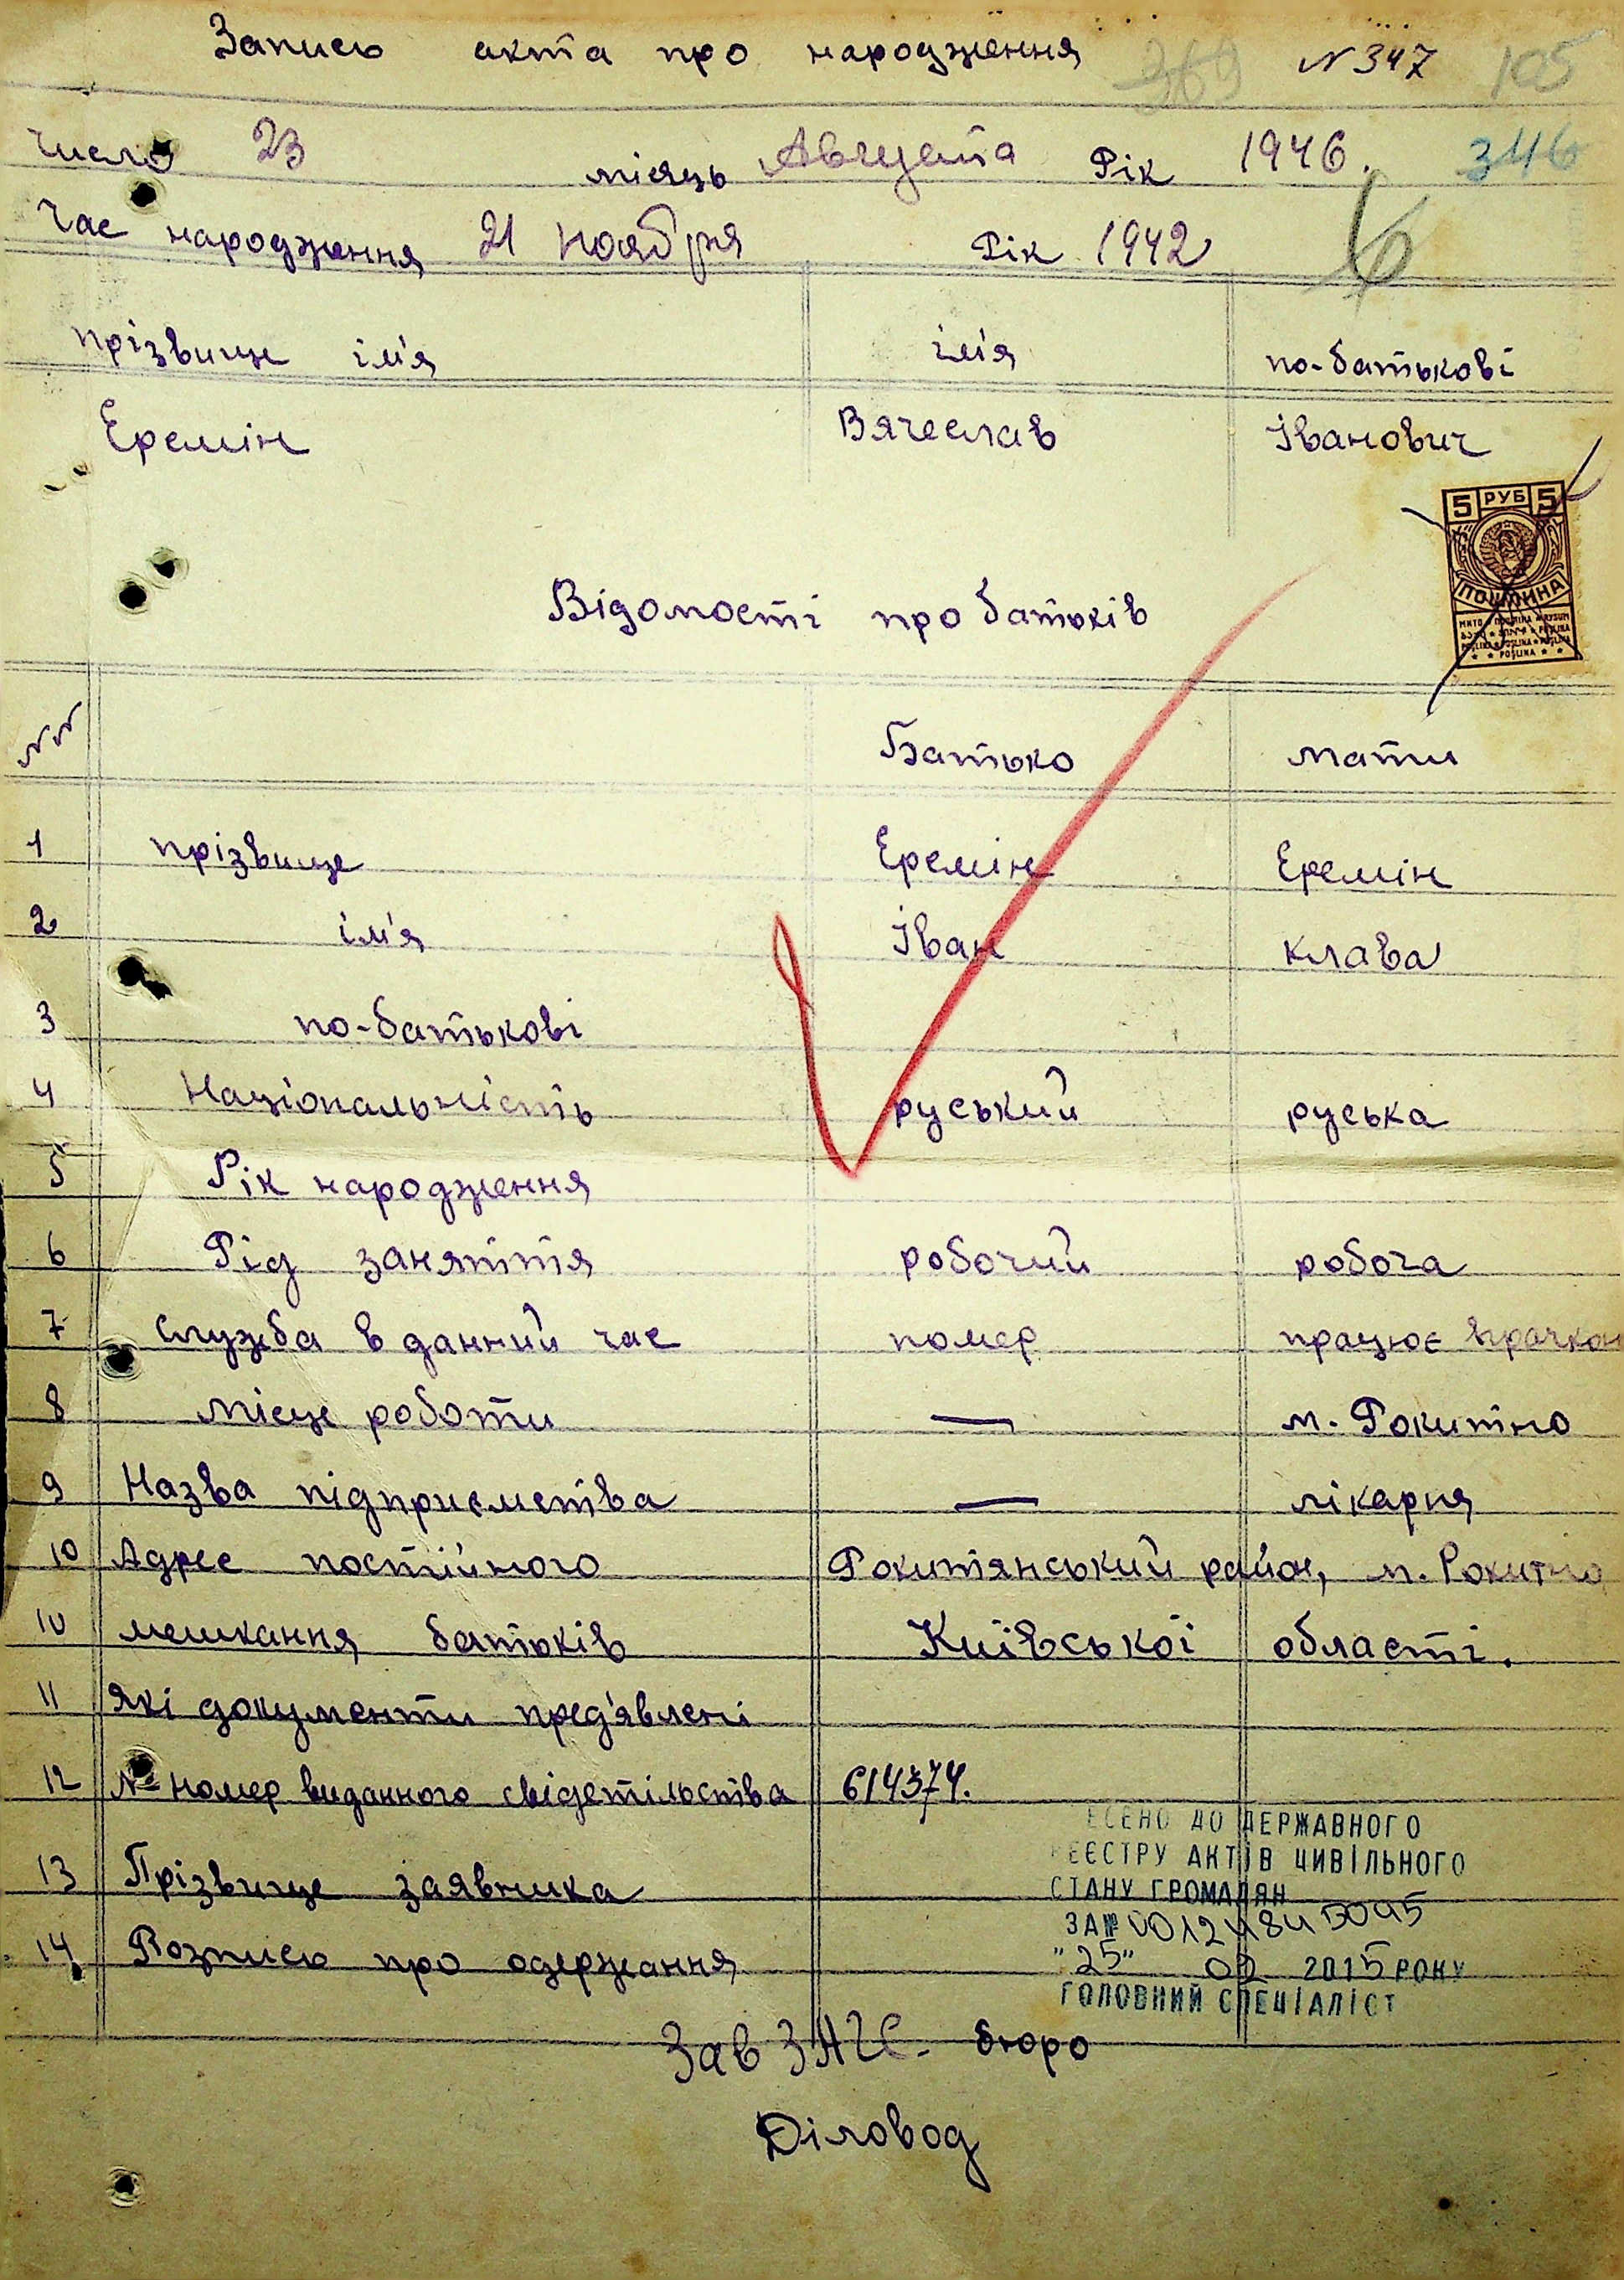 Запись акта про народження 369 N 347 105
число 23 місяць Августа Рік 1946. 346
Час народження 21 ноября Рік 1942
прізвище ім'я ім'я по-батькові
Еремін Вячеслав Іванович
5 РУБ 5
ПОШЛИНА
Відомості про батьків
NN Батько мати
1 прізвище Еремін Еремін
2 ім'я Іван клава
3 по-батькові
4 Національність руський руська
5 Рік народження
6 Рід заняття робочий робоча
7 служба в данний час помер працює прачкой
8 місце роботи — м. Рокитно
9 Назва підприємства — лікарня
10 Адрес постійного Рокитянський район, м. Рокитно
10 мешкання батьків Київської області.
11 які документи пред'явлені
12 № номер виданного свідетільства 614374.
ЕСЕНО ДО ДЕРЖАВНОГО
ЕЄСТРУ АКТІВ ЦИВІЛЬНОГО
13 Прізвище заявника
СТАНУ ГРОМАДЯН
ЗА № 00124845095
14 Розпись про одержання
"25" 02 2015 РОКУ
ГОЛОВНИЙ СПЕЦІАЛІСТ
Зав ЗАГС. бюро
Діловод